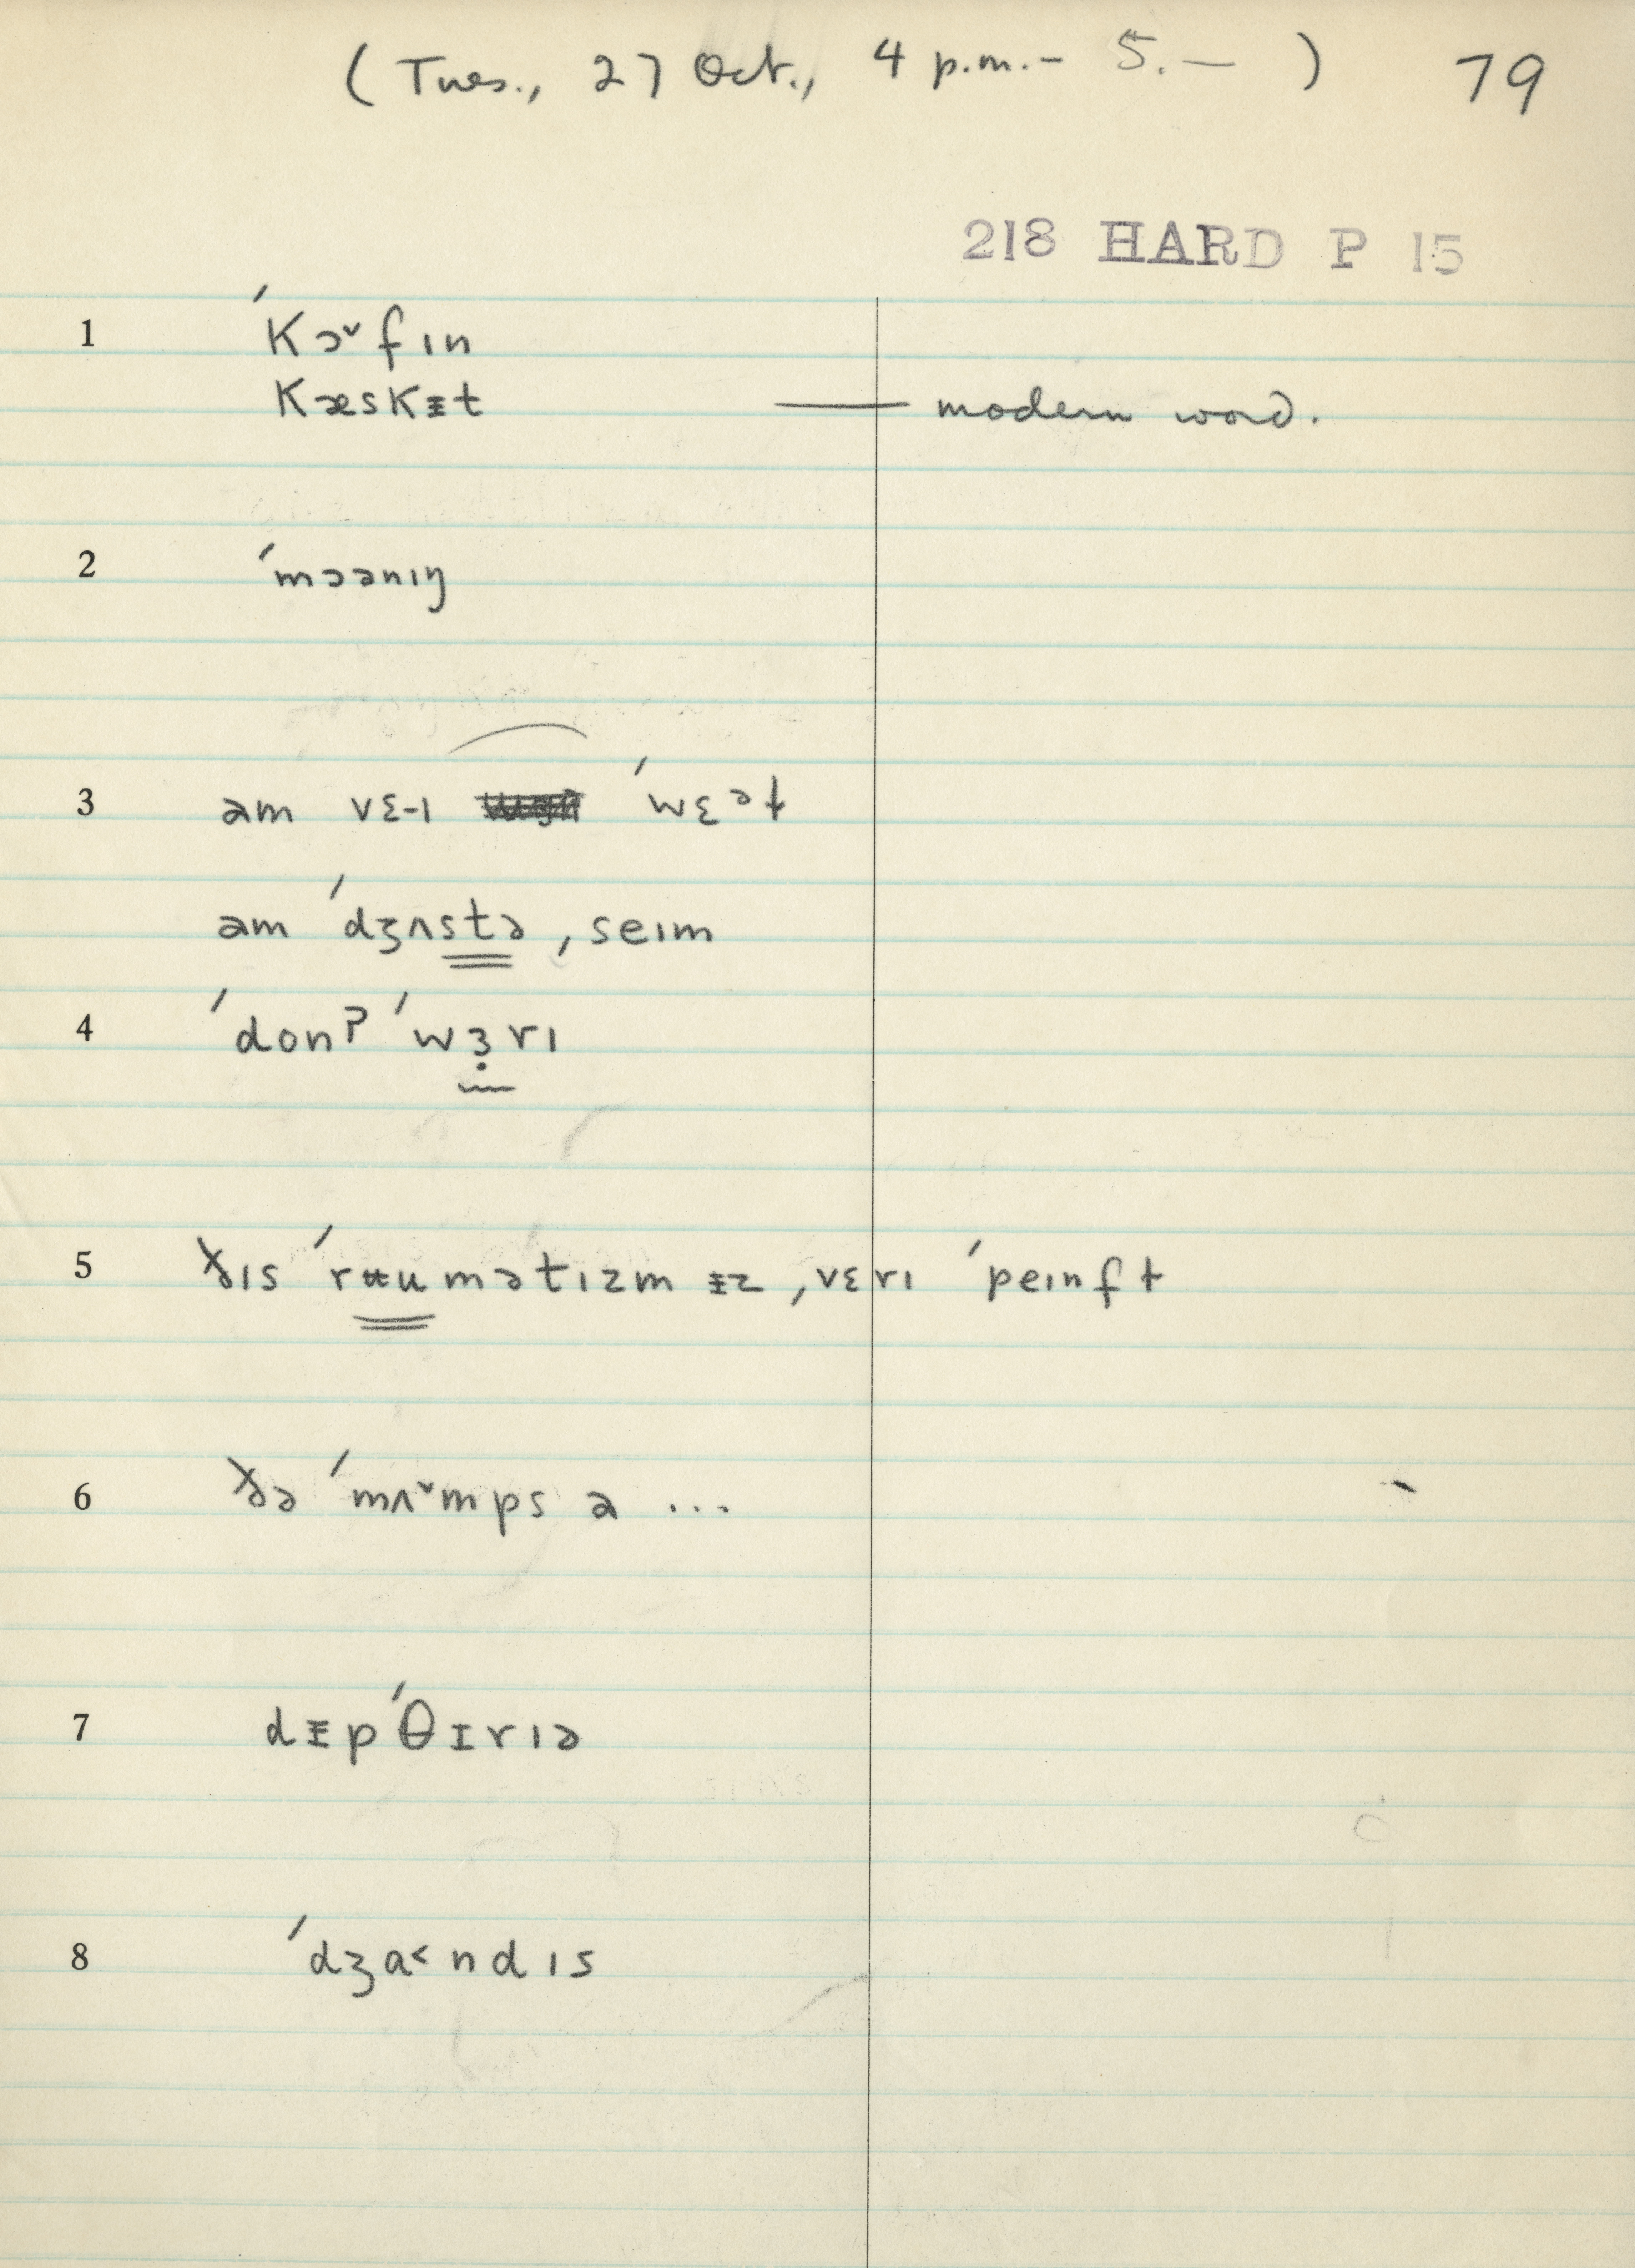 (Tues., 27 Oct., 4 p.m. – 5. — ) 79
218 HARD P 15
1 ˈkɔ˅fın
kæskᵻt — modern word.
2 ˈmɔənıŋ
3 am vɛ-ı ˈwɛᵊɫ
am ˈdʒʌstə ˌseım
4 ˈdonˀ ˈwɜ̣rı
5 ðıs ˈrʉumətızm ᵻz ˌvɛrı ˈpeınfɫ
6 ðə ˈmʌ˅mps ə ...
7 dᵻpˈθɪrıə
8 ˈdʒɑ˂ndıs